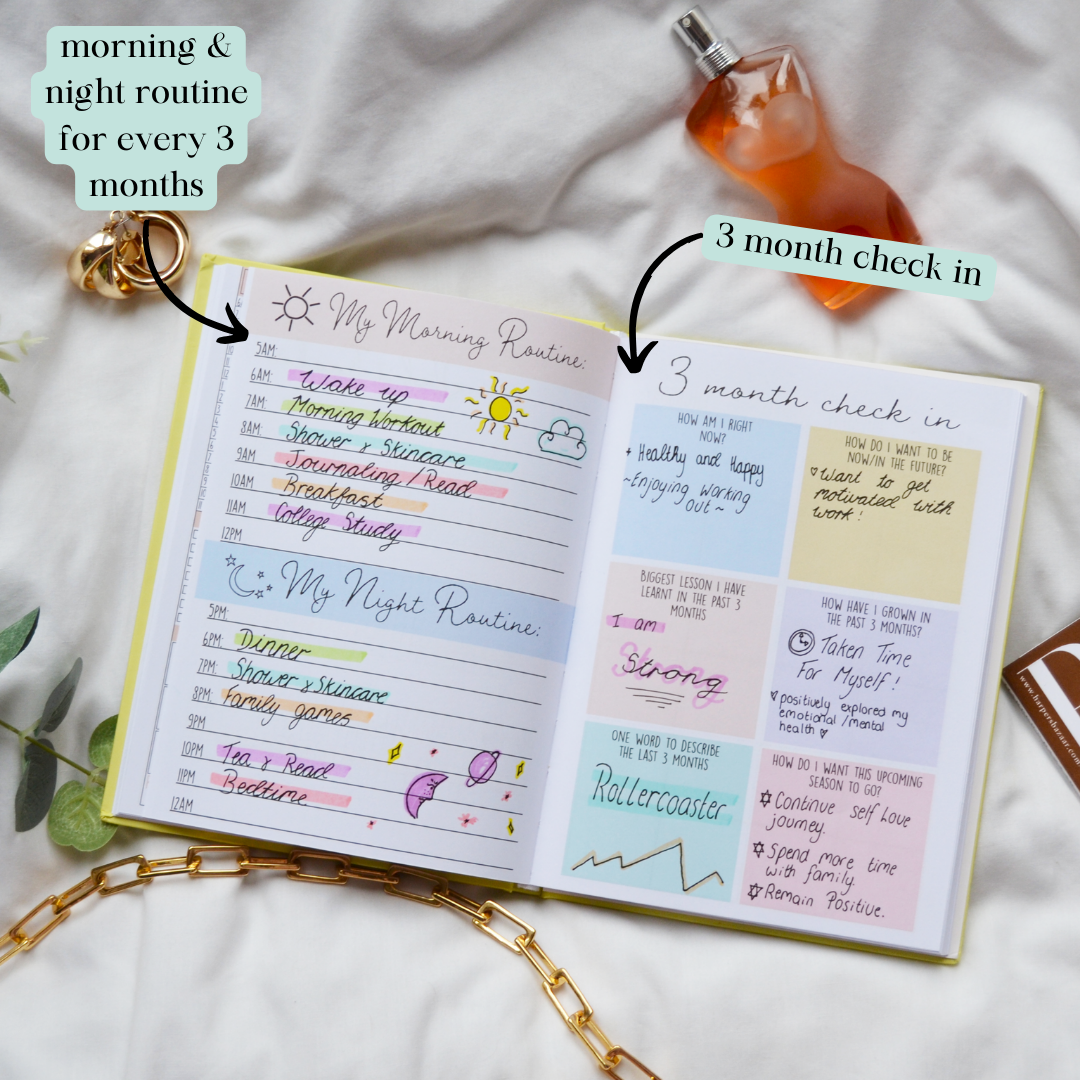 morning &
night routine
for every 3
months
3 month check in
My Morning Routine:
5AM:
6AM: Wake up
7AM: Morning Workout
8AM: Shower & Skincare
9AM Journaling / Read
10AM Breakfast
11AM College Study
12PM
My Night Routine:
5PM:
6PM: Dinner
7PM: Shower & Skincare
8PM: Family games
9PM
10PM Tea & Read
11PM Bedtime
12AM
3 month check in
HOW AM I RIGHT
NOW?
+ Healthy and Happy
~Enjoying working
out~
HOW DO I WANT TO BE
NOW/IN THE FUTURE?
♡ Want to get
motivated with
work!
BIGGEST LESSON I HAVE
LEARNT IN THE PAST 3
MONTHS
I am
Strong
HOW HAVE I GROWN IN
THE PAST 3 MONTHS?
Taken Time
For Myself!
♡ positively explored my
emotional /mental
health ♡
ONE WORD TO DESCRIBE
THE LAST 3 MONTHS
Rollercoaster
HOW DO I WANT THIS UPCOMING
SEASON TO GO?
✡ Continue self love
journey.
✡ Spend more time
with family.
✡ Remain Positive.
www.harpersbazaar.com